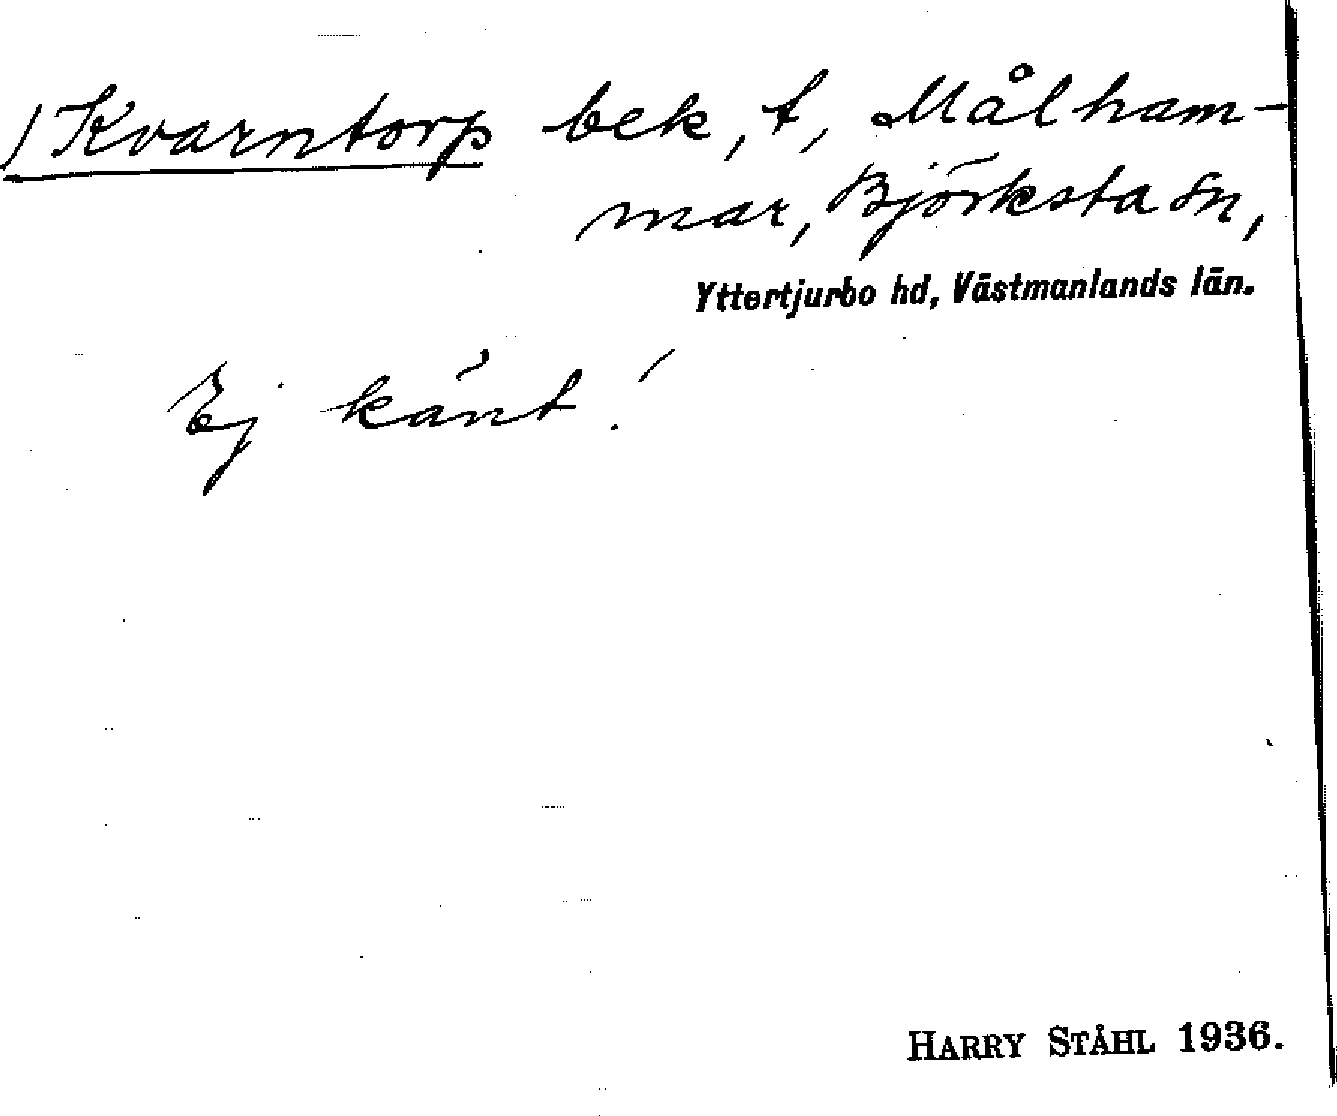 /Kvarntorp bek, t, Målham-
mar, Björksta sn,
Yttertjurbo hd, Västmanlands län.
Ej känt!
HARRY STÅHL 1936.